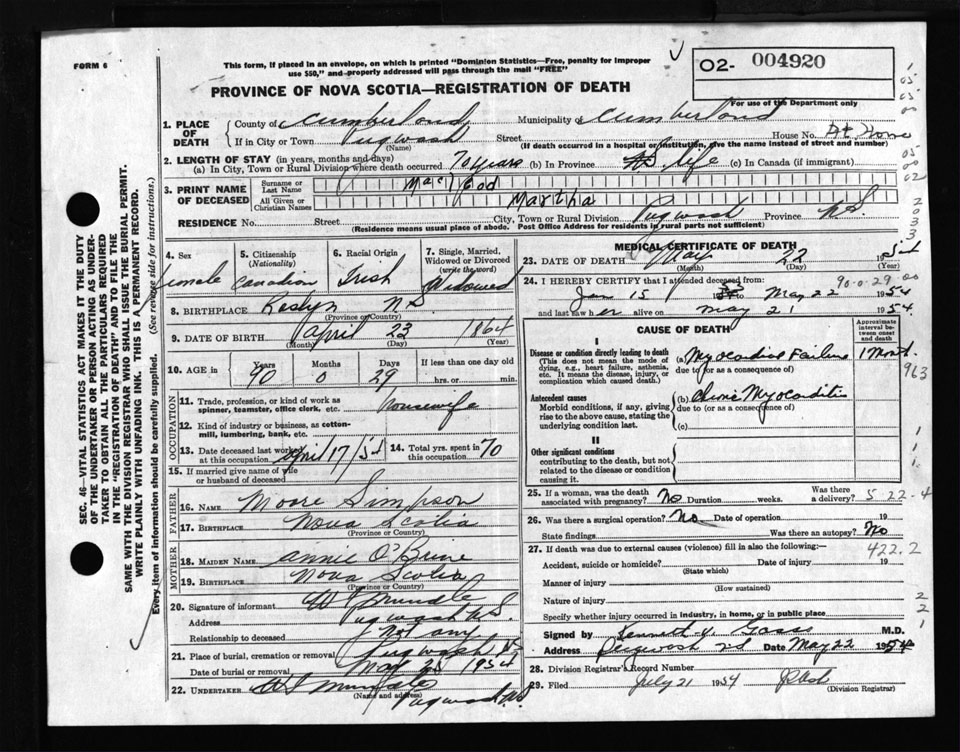 FORM 6
This form, if placed in an envelope, on which is printed "Dominion Statistics—Free, penalty for improper
use $50," and properly addressed will pass through the mail "FREE"
O2- 004920
PROVINCE OF NOVA SCOTIA—REGISTRATION OF DEATH
For use of the Department only
1. PLACE OF DEATH County of Cumberland Municipality of Cumberland
If in City or Town Pugwash Street House No. At Home
(Name) (If death occurred in a hospital or institution, give the name instead of street and number)
2. LENGTH OF STAY (in years, months and days)
(a) In City, Town or Rural Division where death occurred 70 years (b) In Province life (c) In Canada (if immigrant)
3. PRINT NAME OF DECEASED Surname or Last Name MacLeod
All Given or Christian Names Martha
RESIDENCE No. Street City, Town or Rural Division Pugwash Province N.S.
(Residence means usual place of abode. Post Office Address for residents in rural parts not sufficient)
4. Sex female
5. Citizenship (Nationality) Canadian
6. Racial Origin Irish
7. Single, Married, Widowed or Divorced (write the word) Widowed
8. BIRTHPLACE N.S.
(Province or Country)
9. DATE OF BIRTH April 23 1864
(Month) (Day) (Year)
10. AGE in Years 90 Months 0 Days 29 If less than one day old
hrs. or min.
OCCUPATION
11. Trade, profession, or kind of work as spinner, teamster, office clerk, etc. housewife
12. Kind of industry or business, as cotton-mill, lumbering, bank, etc.
13. Date deceased last worked at this occupation April 17/54 14. Total yrs. spent in this occupation 70
15. If married give name of wife or husband of deceased
FATHER
16. NAME Moore Simpson
17. BIRTHPLACE Nova Scotia
(Province or Country)
MOTHER
18. MAIDEN NAME Annie O'Brine
19. BIRTHPLACE Nova Scotia
(Province or Country)
20. Signature of informant
Address Pugwash N.S.
Relationship to deceased Not any
21. Place of burial, cremation or removal Pugwash N.S.
Date of burial or removal May 1954
22. UNDERTAKER
(Name and address) Pugwash N.S.
MEDICAL CERTIFICATE OF DEATH
23. DATE OF DEATH May 22 1954
(Month) (Day) (Year)
24. I HEREBY CERTIFY that I attended deceased from: 90-0-29
Jan 15 to May 22 1954
and last saw her alive on May 21 1954.
CAUSE OF DEATH
Approximate interval between onset and death
I
Disease or condition directly leading to death (a) Myocardial Failure 1 Month
(This does not mean the mode of dying, e.g., heart failure, asthenia, etc. It means the disease, injury, or complication which caused death.)
due to (or as a consequence of)
963
Antecedent causes (b) Chronic Myocarditis
Morbid conditions, if any, giving rise to the above cause, stating the underlying condition last.
due to (or as a consequence of)
(c)
II
Other significant conditions
contributing to the death, but not related to the disease or condition causing it.
25. If a woman, was the death associated with pregnancy? No Duration weeks. Was there a delivery? 5-22-4
26. Was there a surgical operation? No Date of operation 19
State findings Was there an autopsy? No
27. If death was due to external causes (violence) fill in also the following:— 422.2
Accident, suicide or homicide? Date of injury 19
(State which)
Manner of injury
(How sustained)
Nature of injury
Specify whether injury occurred in industry, in home, or in public place
Signed by Kenneth V. Gass M.D.
Address Pugwash N.S. Date May 22 1954
28. Division Registrar's Record Number
29. Filed July 21 1954
(Division Registrar)
SEC. 46—VITAL STATISTICS ACT MAKES IT THE DUTY
OF THE UNDERTAKER OR PERSON ACTING AS UNDER-
TAKER TO OBTAIN ALL THE PARTICULARS REQUIRED
IN THE "REGISTRATION OF DEATH" AND TO FILE THE
SAME WITH THE DIVISION REGISTRAR WHO SHALL ISSUE THE BURIAL PERMIT.
WRITE PLAINLY WITH UNFADING INK. THIS IS A PERMANENT RECORD.
Every item of information should be carefully supplied. (See reverse side for instructions.)